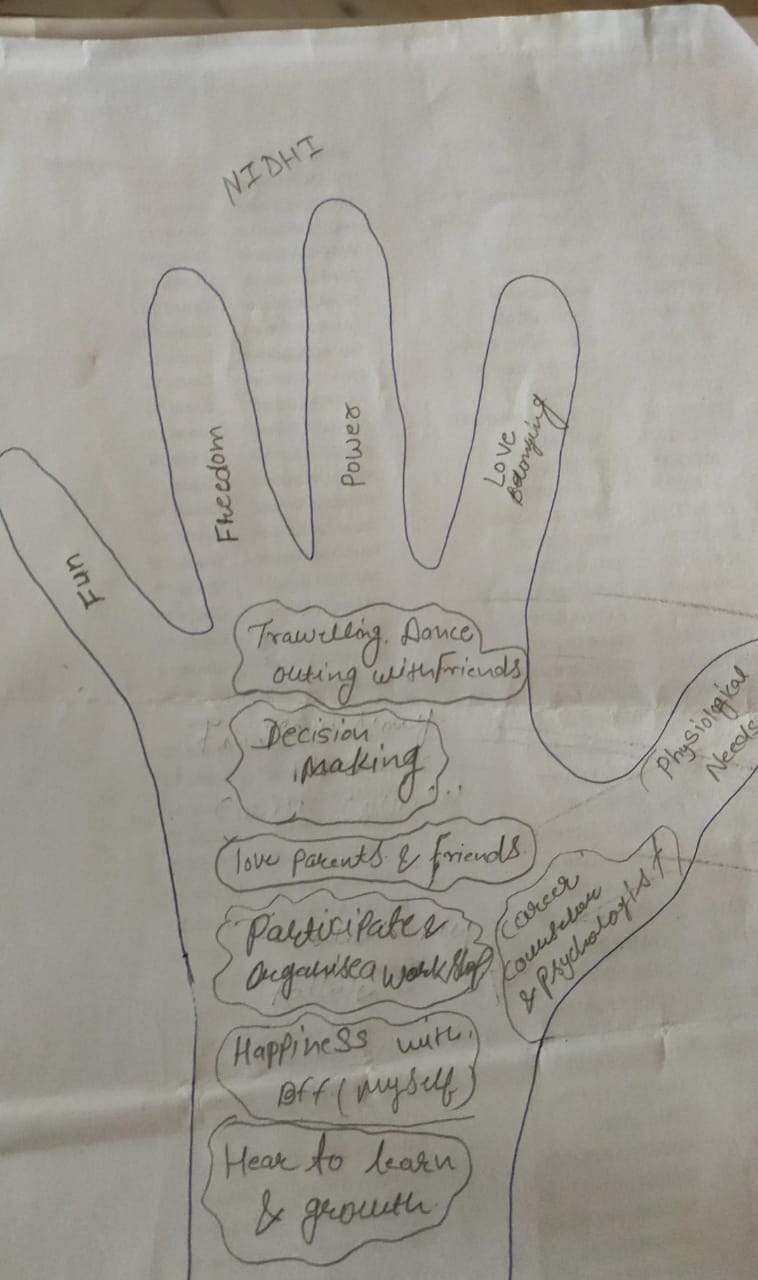 NIDHI
Fun
Freedom
Power
Love
Belonging
Physiological
Needs
Trawelling. Dance
outing with friends
Decision
making
love parents & friends.
Participate &
organise a workshop
Career
counselor
& Psychologist
Happiness with
Bff (myself)
Hear to learn
& growth.